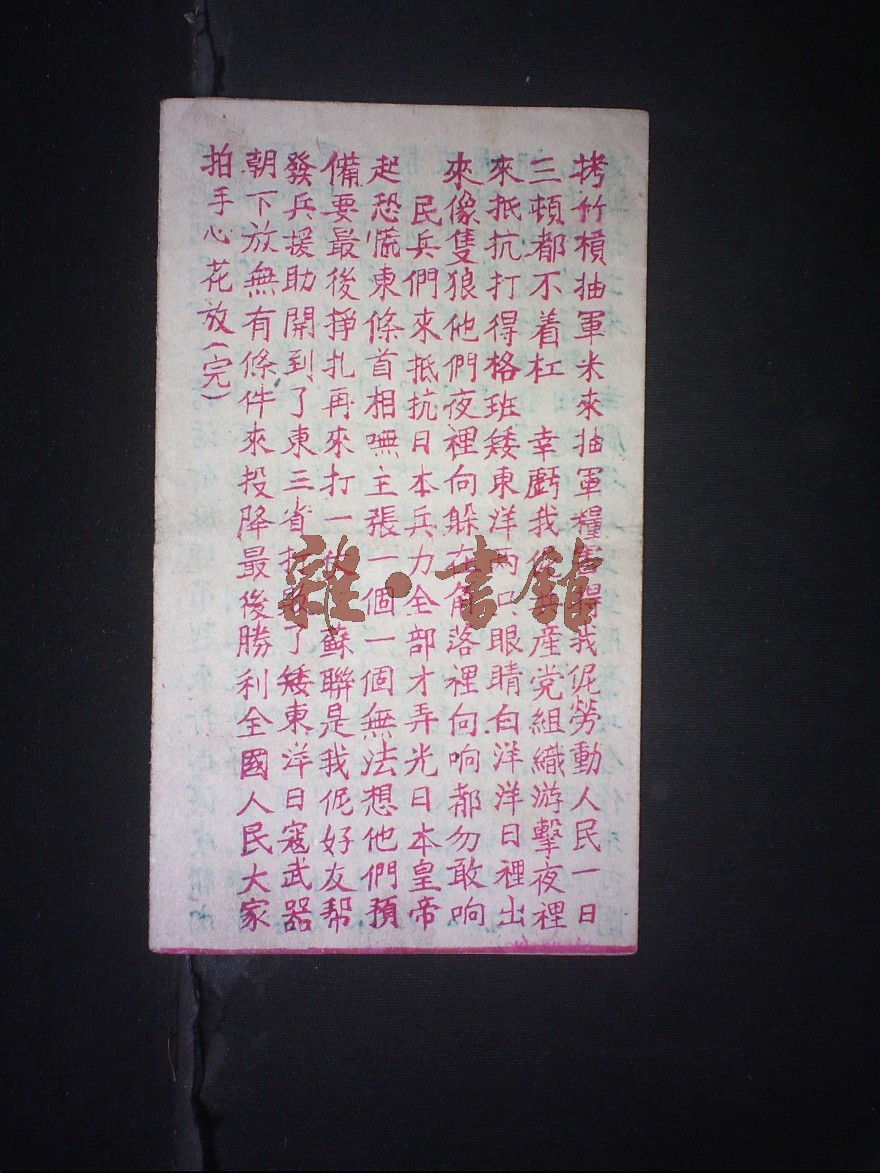 拷竹槓抽軍米來抽軍糧害得我伲勞動人民一日
三頓都不着杠 幸虧我伲共產党組織游擊夜裡
來抵抗打得格班矮東洋两口眼睛白洋洋日裡出
來像隻狼他們夜裡向躲在角落裡向响都勿敢响
民兵們來抵抗日本兵力全部才弄光日本皇帝
起恐慌東條首相嘸主張一個一個無法想他們預
備要最後掙扎再來打一仗 蘇聯是我伲好友帮
發兵援助開到了東三省打敗了矮東洋日寇武器
朝下放無有條件來投降最後勝利全國人民大家
拍手心花放(完)
雜·書館